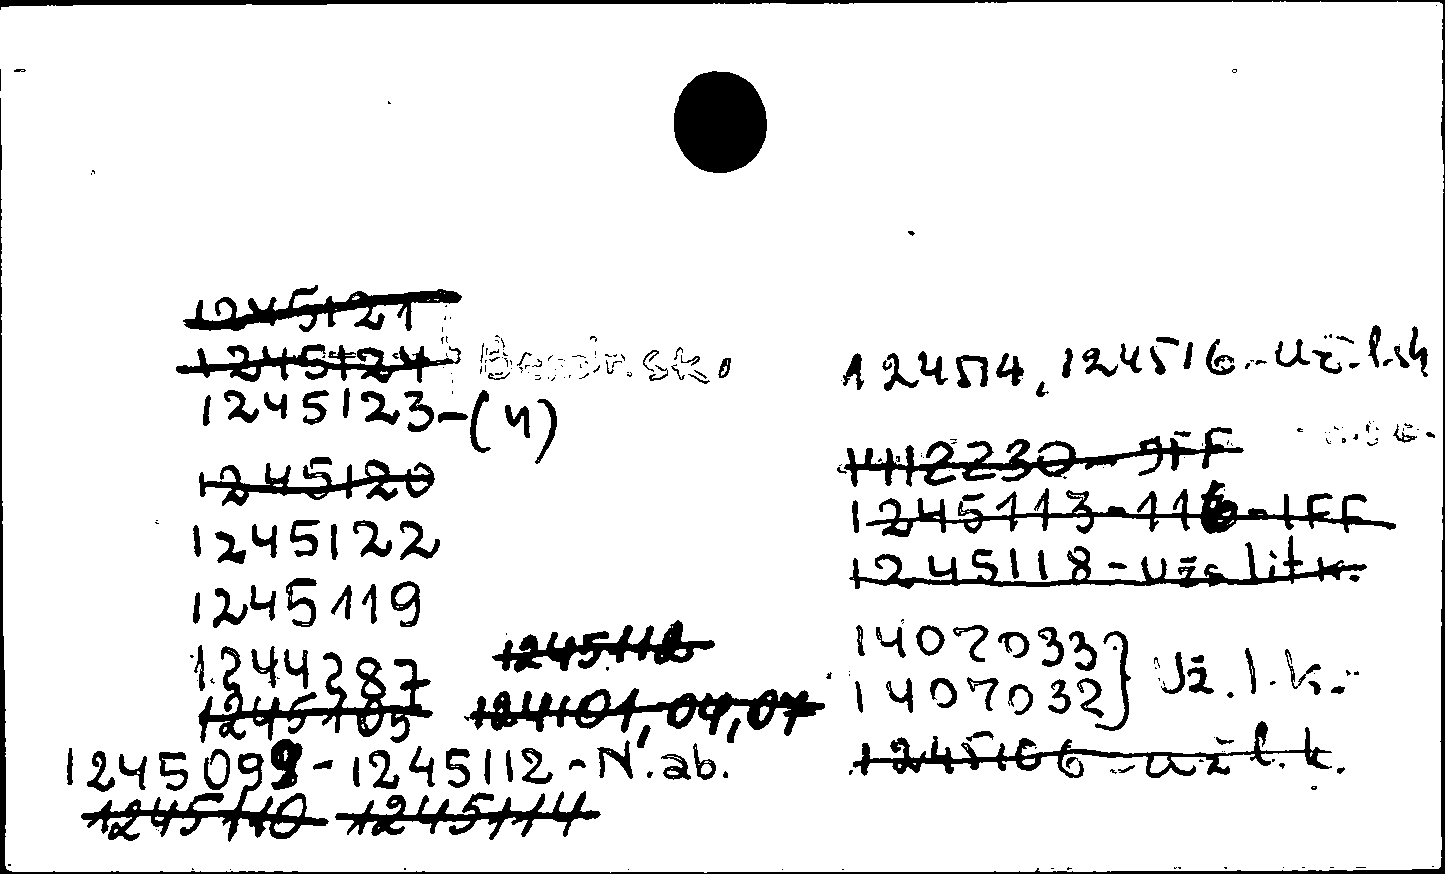 1245121
1245124 Bendr. sk.
1245123-(4)
1245120
1245122
1245119
1244287
1245112
1245105 124101, 04, 07
1245099-1245112-N.ab.
1245110 1245114
124514, 124516-Už.l.sk
1412230-IFF
1245113-116-IFF
1245118-Užs litk.
1407033
1407032} Už.l.k.
1245106-už l.k.